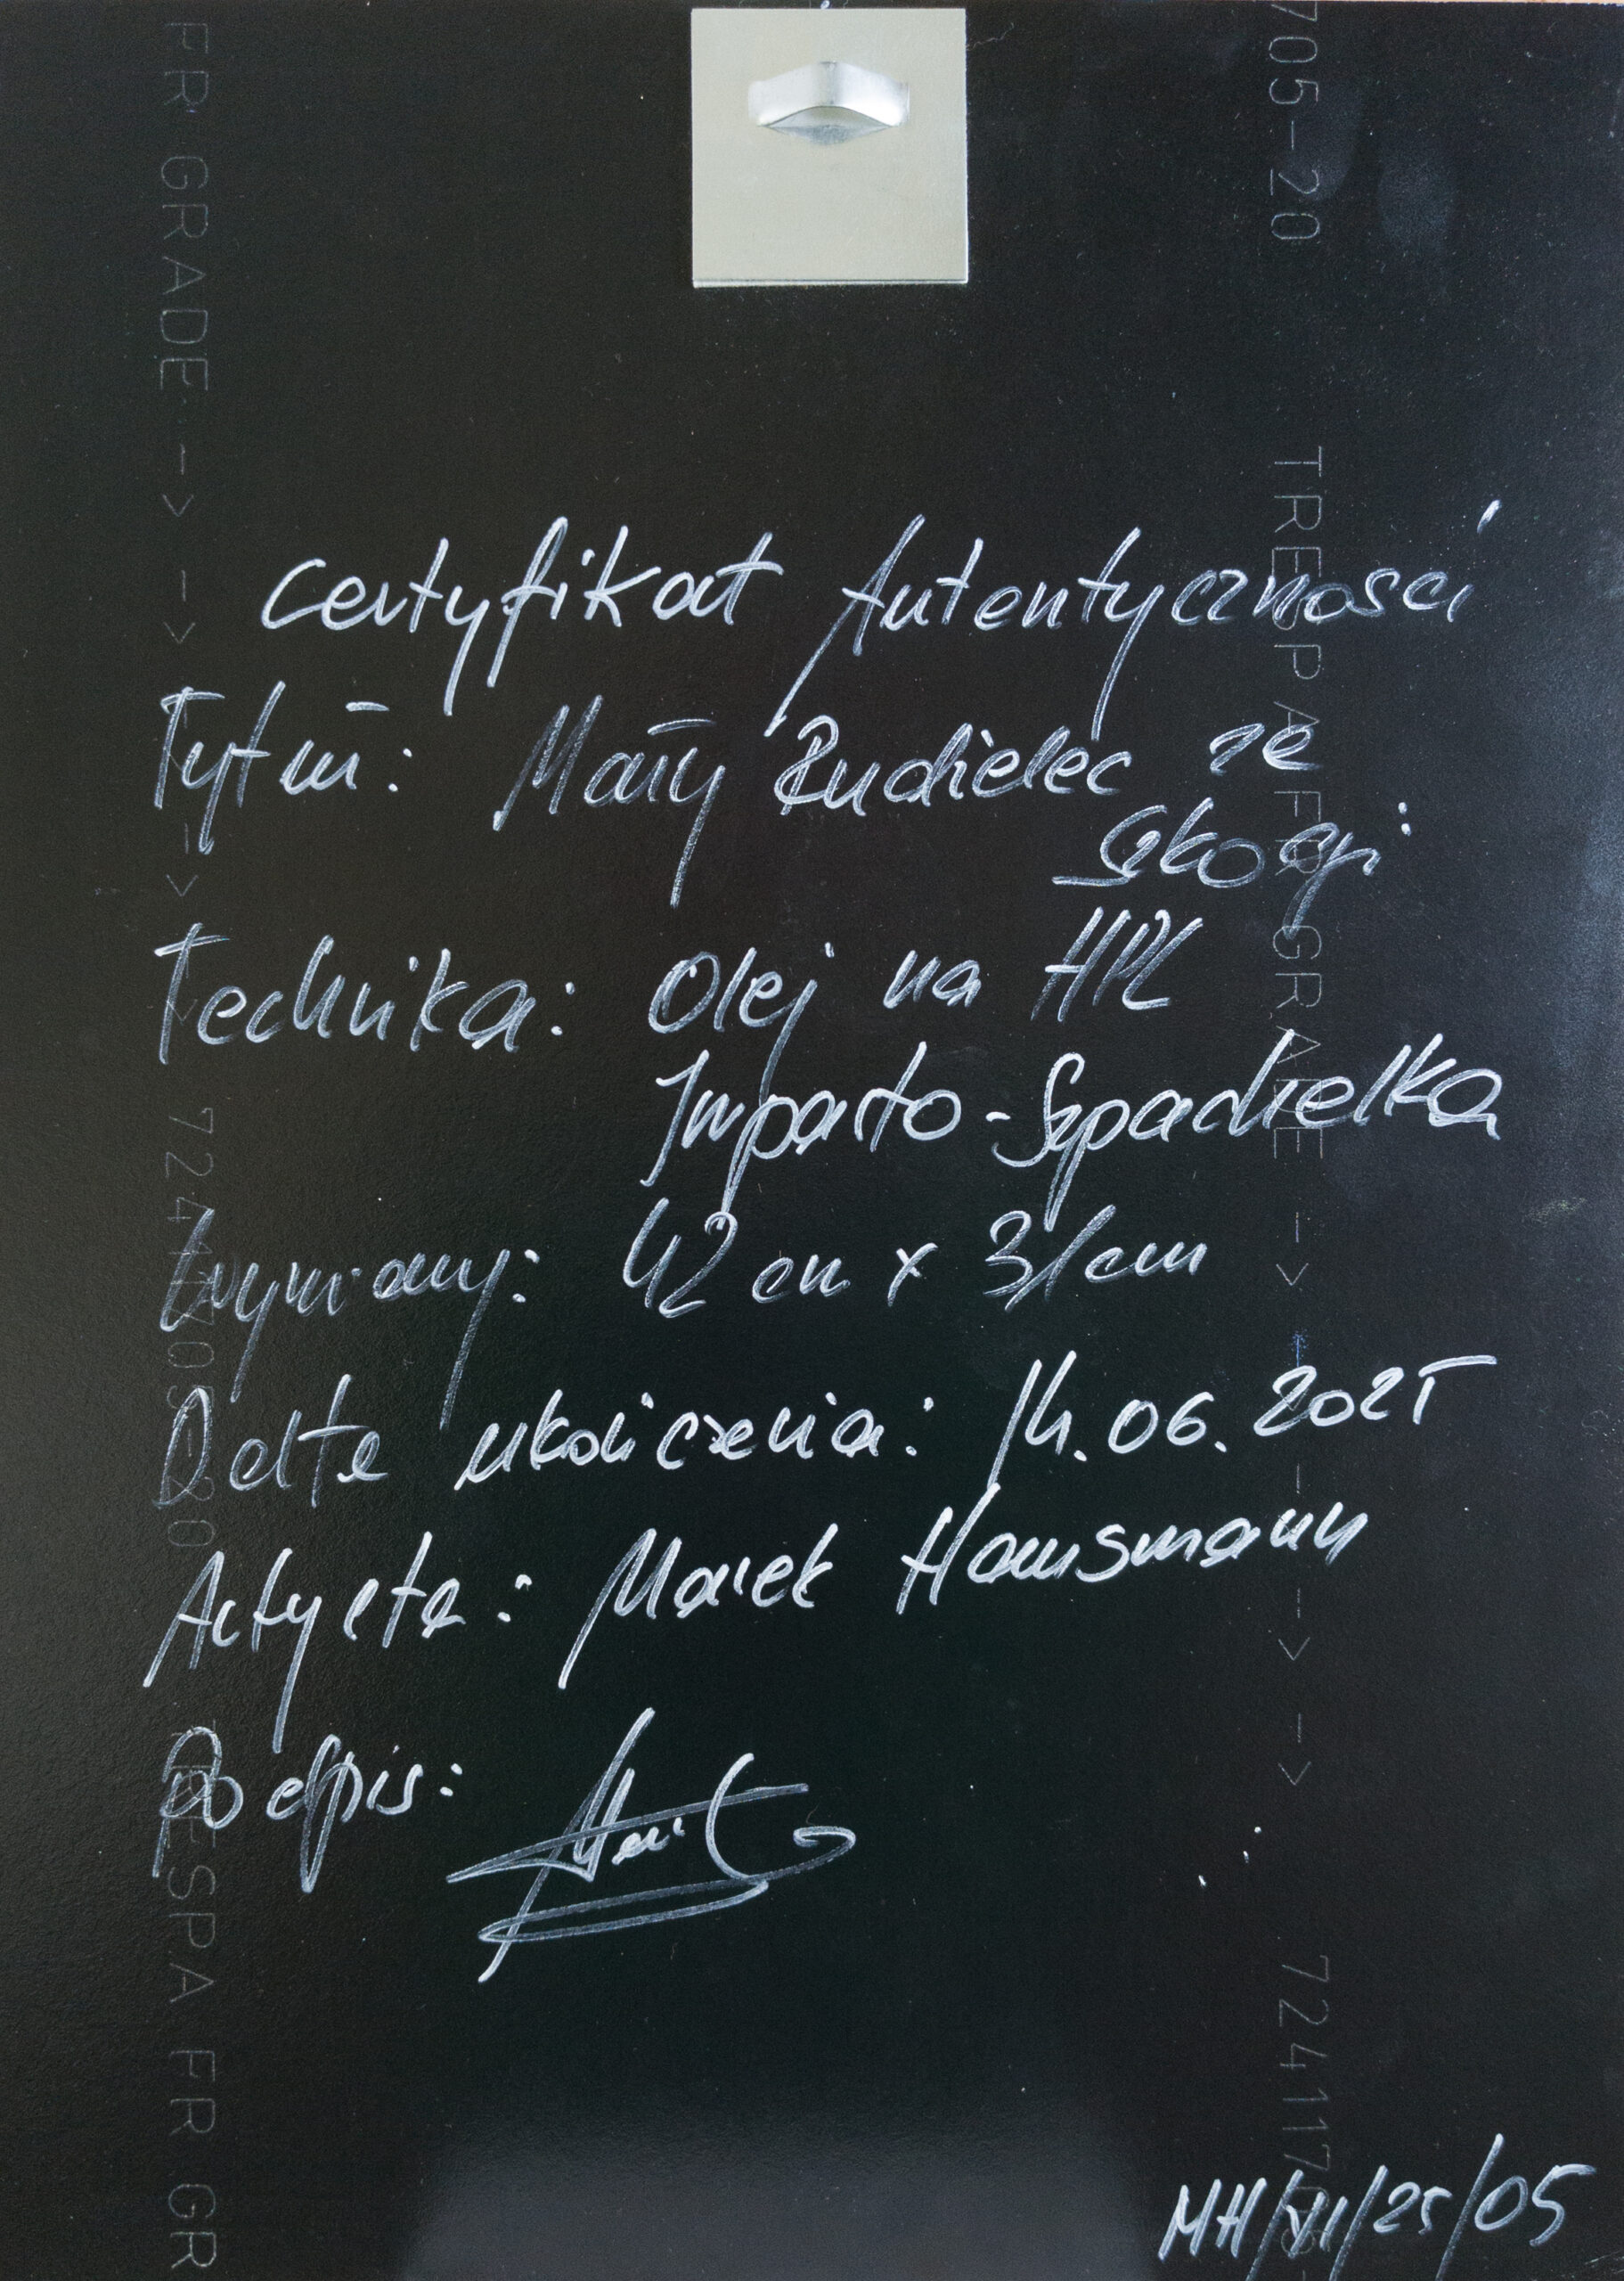 Certyfikat Autentyczności
Tytuł: Mały Rudzielec ze
Szkocji
Technika: Olej na HPL
Impasto - Szpachelka
Wymiary: 42 cm x 31 cm
Data ukończenia: 14.06.2025
Artysta: Marek Hausmann
Podpis:
MH/VI/25/05
FR GRADE -> -> -> -> 72411705-20
TRESPA FR GR
705-20
TRESPA FR GRADE -> -> -> ->
724117